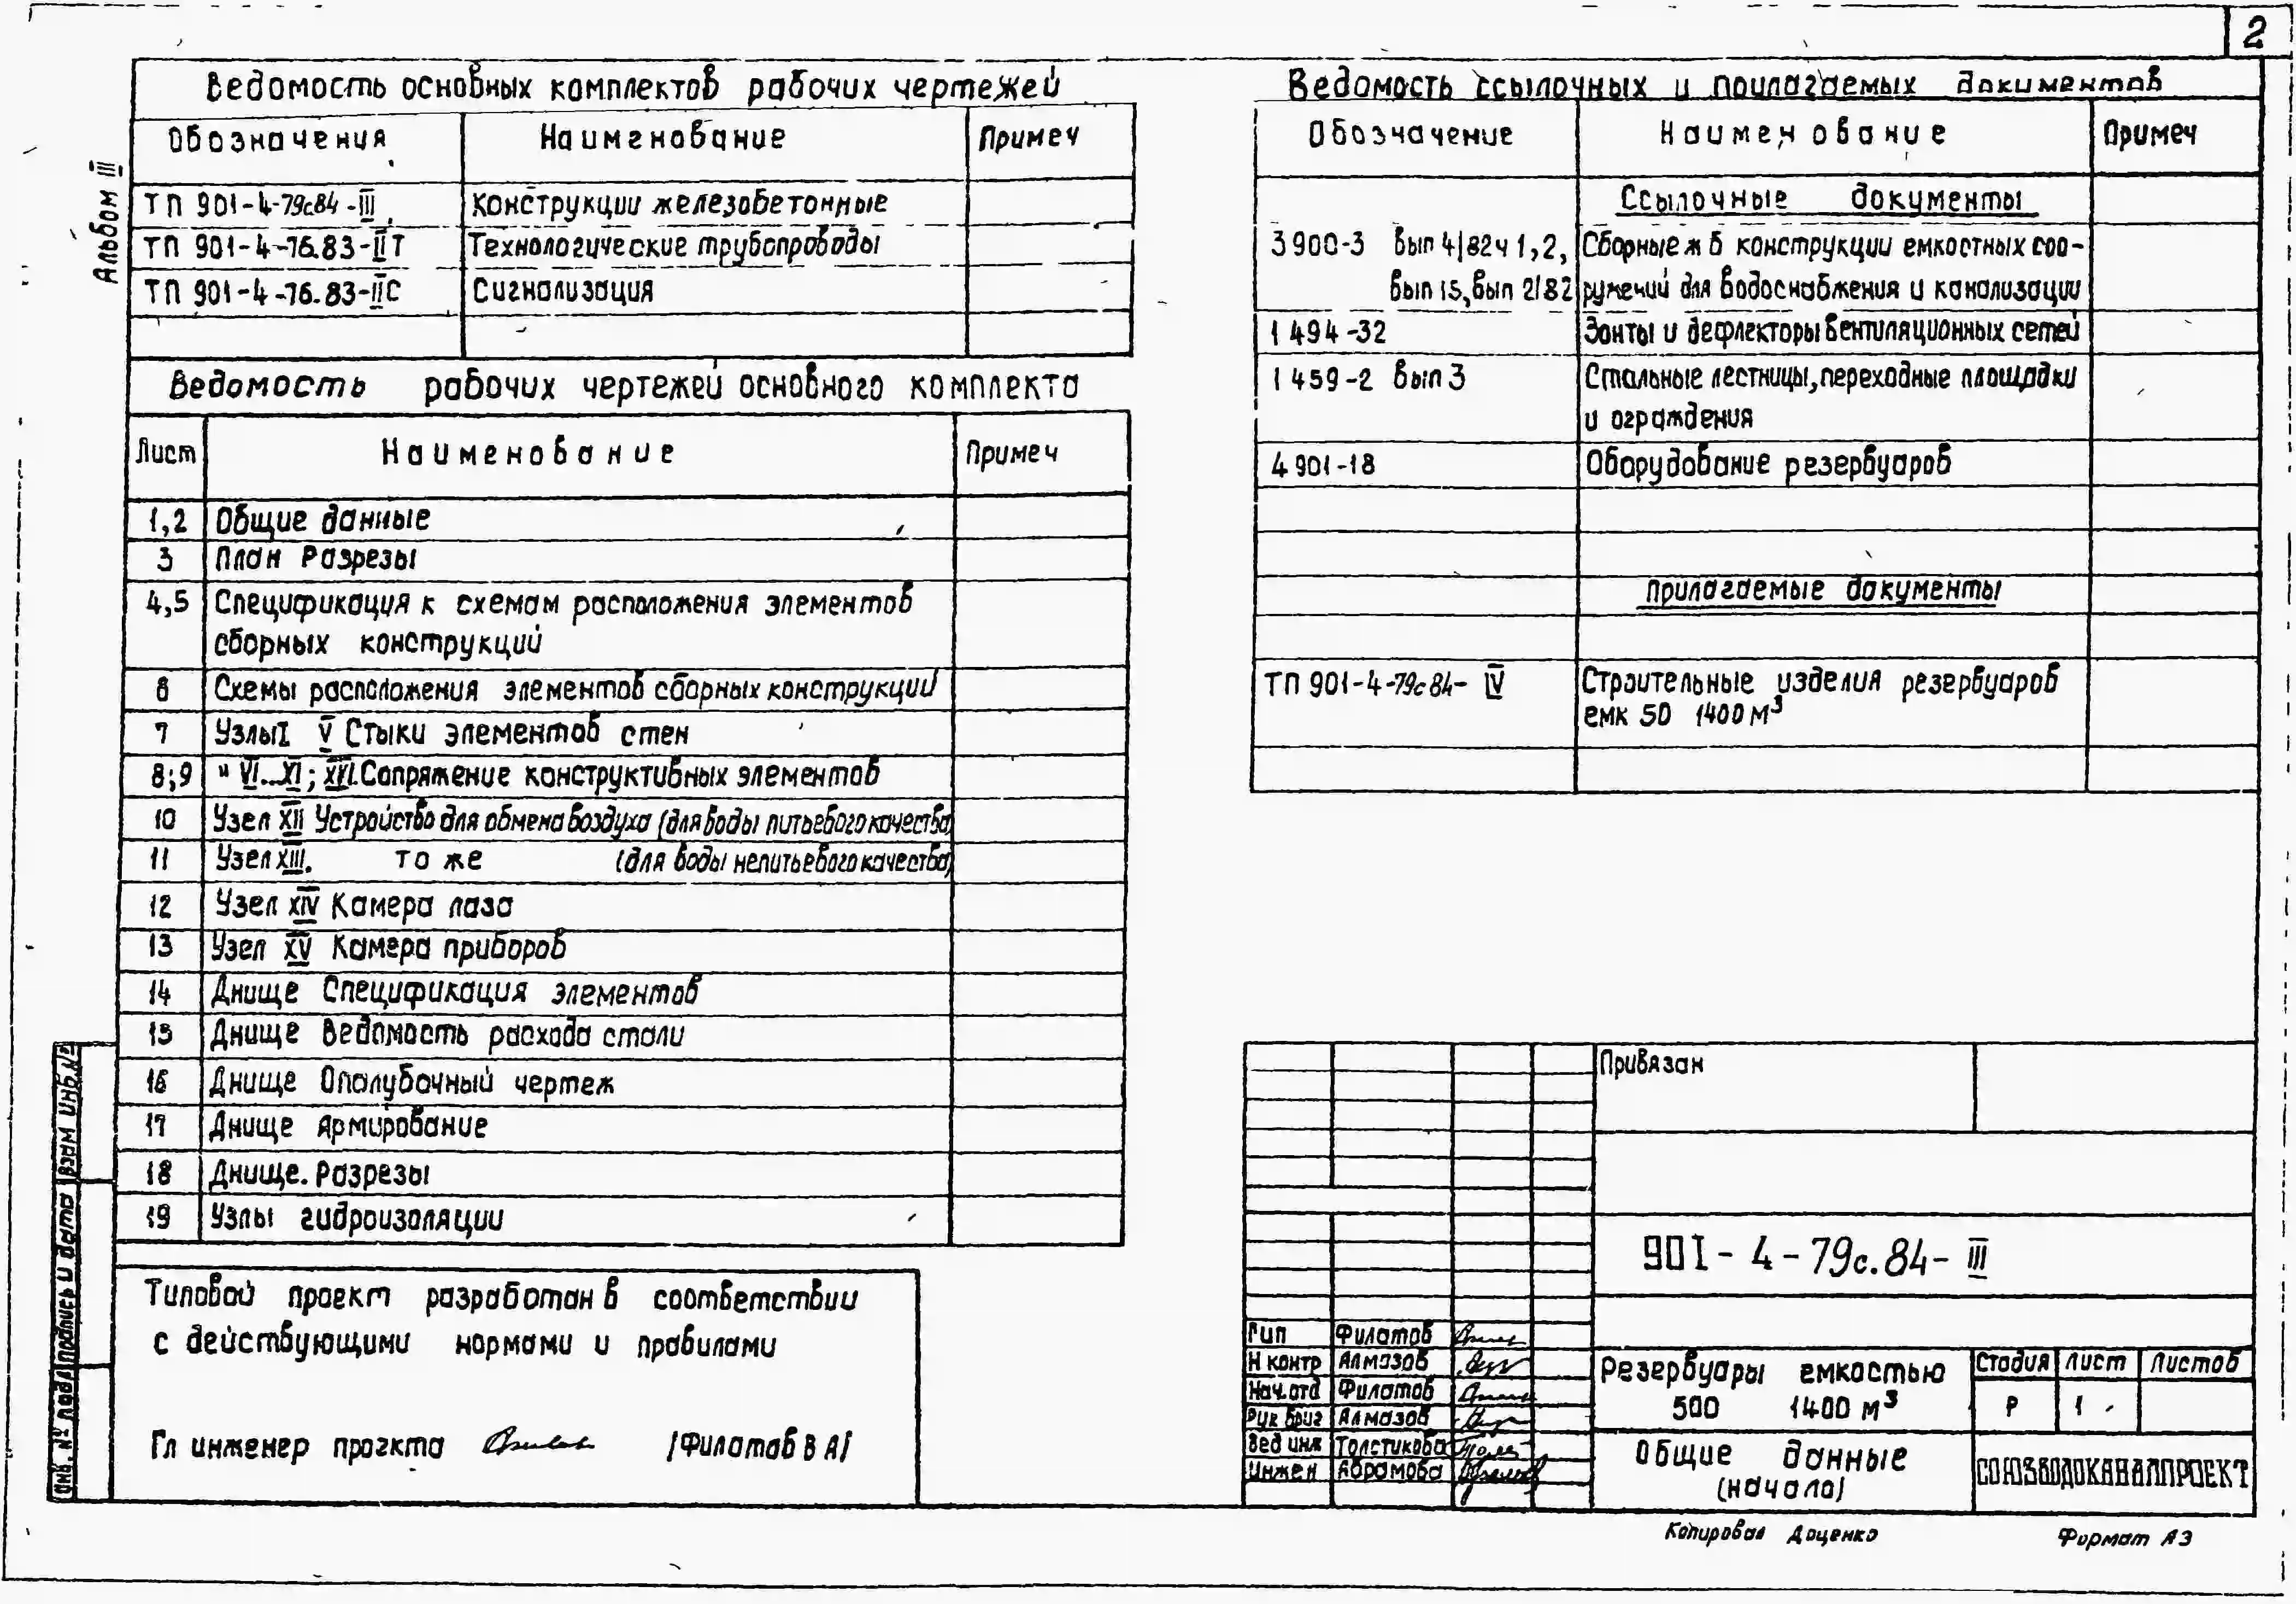 2
Альбом III
Ведомость основных комплектов рабочих чертежей
Обозначения Наименование Примеч
ТП 901-4-79с84-III Конструкции железобетонные
ТП 901-4-76.83-IIТ Технологические трубопроводы
ТП 901-4-76.83-IIС Сигнализация
Ведомость рабочих чертежей основного комплекта
Лист Наименование Примеч
1,2 Общие данные
3 План Разрезы
4,5 Спецификация к схемам расположения элементов
сборных конструкций
6 Схемы расположения элементов сборных конструкций
7 Узлы I V Стыки элементов стен
8;9 " VI...XI; XVI. Сопряжение конструктивных элементов
10 Узел XII Устройство для обмена воздуха (для воды питьевого качества)
11 Узел XIII. то же (для воды непитьевого качества)
12 Узел XIV Камера лаза
13 Узел XV Камера приборов
14 Днище Спецификация элементов
15 Днище Ведомость расхода стали
16 Днище Опалубочный чертеж
17 Днище Армирование
18 Днище. Разрезы
19 Узлы гидроизоляции
Типовой проект разработан в соответствии
с действующими нормами и правилами
Гл инженер проекта /Филатов В А/
Инв. № подл Подпись и дата Взам инв.№
Ведомость ссылочных и прилагаемых документов
Обозначение Наименование Примеч
Ссылочные документы
3 900-3 вып 4/82 ч 1,2, Сборные ж б конструкции емкостных соо-
вып 15, вып 2/82 ружений для водоснабжения и канализации
1 494-32 Зонты и дефлекторы вентиляционных сетей
1 459-2 вып 3 Стальные лестницы, переходные площадки
и ограждения
4 901-18 Оборудование резервуаров
Прилагаемые документы
ТП 901-4-79с84-IV Строительные изделия резервуаров
емк 50 1400 м³
Привязан
901-4-79с.84-III
Гип Филатов
Н контр Алмазов
Нач.отд Филатов
Рук бриг Алмазов
Вед инж Толстикова
Инжен Абрамова
Резервуары емкостью
500 1400 м³
Стадия Лист Листов
Р 1
Общие данные
(начало)
СОЮЗВОДОКАНАЛПРОЕКТ
Копировал Доценко Формат А3